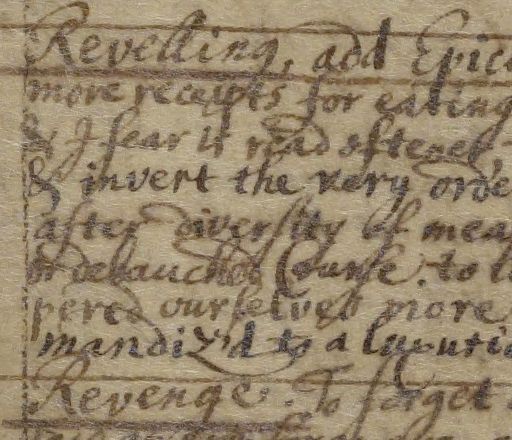 Revelling, add Epic
more receipts for eating
& I fear is read oftener,
& invert the very orde
after diversity of mea
or debauched Course. to
pered ourselves more
mandiz'd to a luxurio
Revenge. To forget